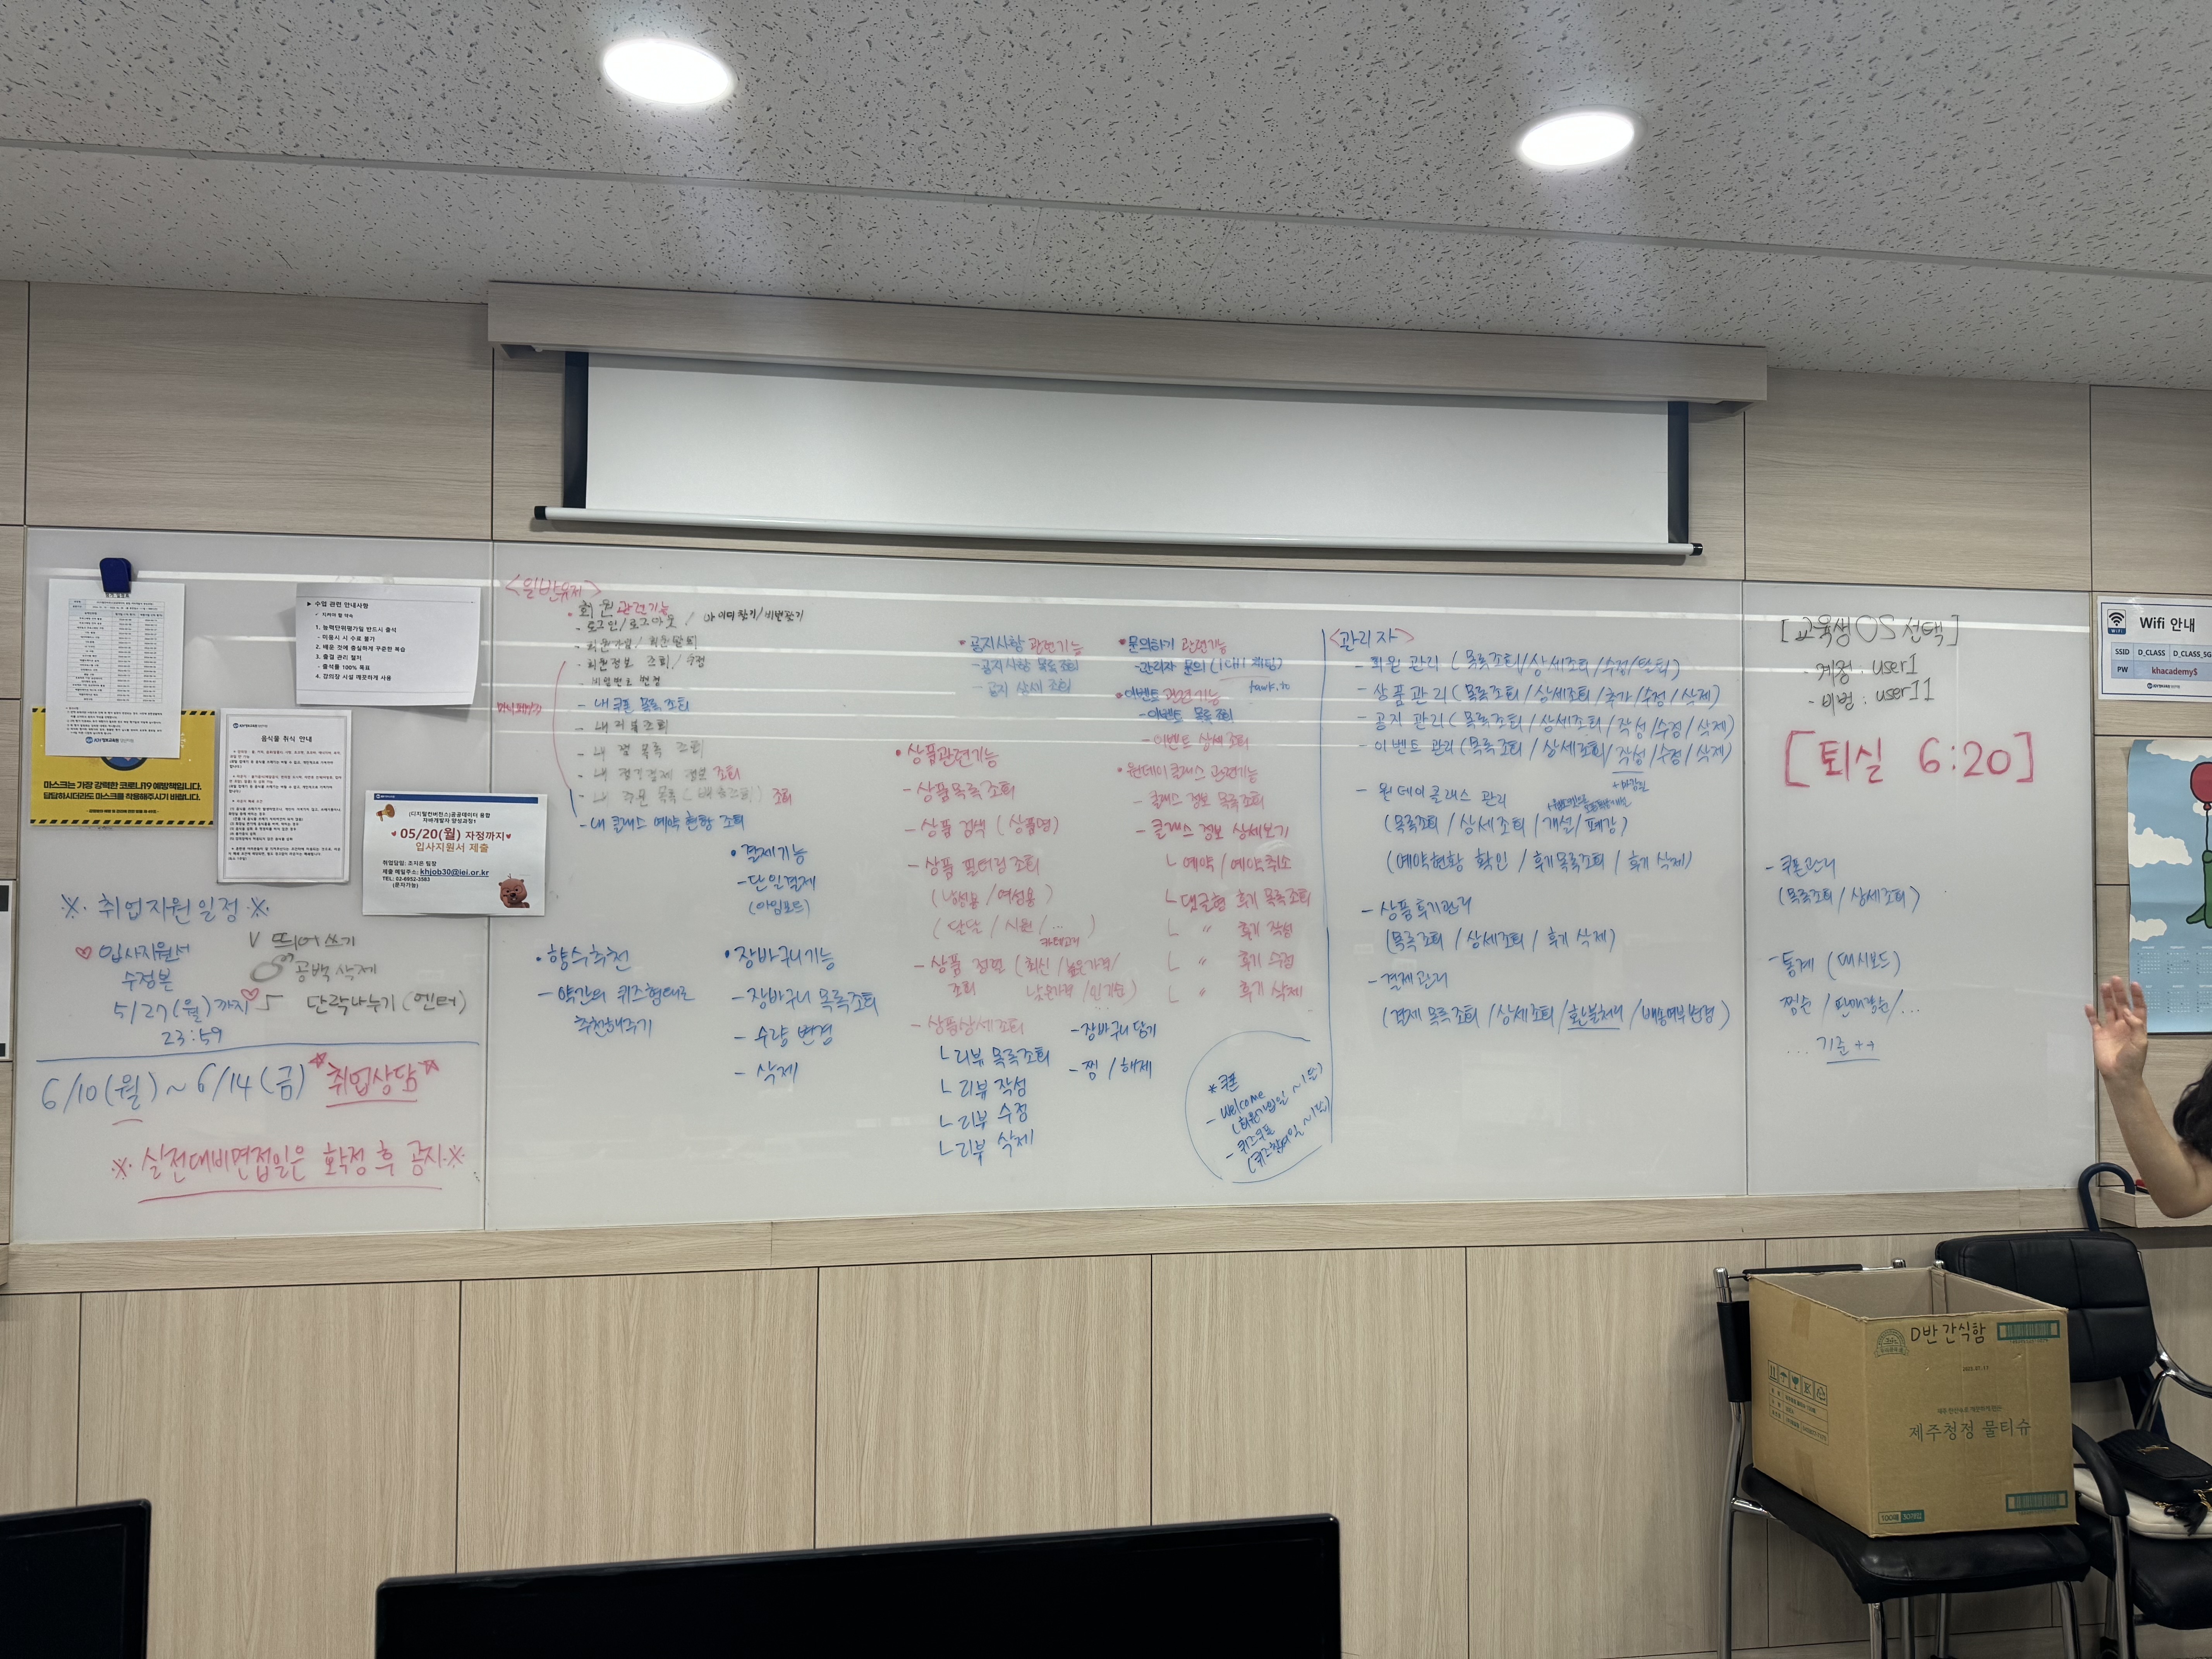 ▶ 수업 관련 안내사항
✓ 지켜야 할 약속
1. 능력단위평가일 반드시 출석
- 미응시 시 수료 불가
2. 배운 것에 충실하게 꾸준한 복습
3. 출결 관리 철저
- 출석률 100% 목표
4. 강의장 시설 깨끗하게 사용
마스크는 가장 강력한 코로나19 예방책입니다.
답답하시더라도 마스크를 착용해주시기 바랍니다.
음식물 취식 안내
(디지털컨버전스)공공데이터 융합
자바개발자 양성과정1
♥ 05/20(월) 자정까지♥
입사지원서 제출
취업담임: 조지은 팀장
제출 메일주소: khjob30@iei.or.kr
TEL: 02-6952-3583
(문자가능)
※ 취업지원일정 ※
♡ 입사지원서
수정본
5/27(월)까지♡
23:59
V 띄어쓰기
공백 삭제
단락나누기 (엔터)
6/10(월) ~ 6/14(금) *취업상담*
※ 실전대비면접일은 확정 후 공지※
<일반유저>
• 회원 관련기능
- 로그인/로그아웃 / 아이디찾기/비번찾기
- 회원가입/ 회원탈퇴
- 회원정보 조회/수정
- 비밀번호 변경
마이페이지
- 내 쿠폰 목록 조회
- 내 리뷰조회
- 내 찜 목록 조회
- 내 정기결제 정보 조회
- 내 주문 목록 (배송조회) 조회
- 내 클래스 예약 현황 조회
• 결제기능
- 단일결제
(아임포트)
• 향수추천
- 약간의 퀴즈형태로
추천해주기
• 장바구니기능
- 장바구니 목록조회
- 수량 변경
- 삭제
• 공지사항 관련기능
- 공지사항 목록조회
- 공지 상세 조회
• 상품관련기능
- 상품목록조회
- 상품 검색 (상품명)
- 상품 필터링 조회
(남성용/여성용)
(달달/시원/...)
카테고리
- 상품 정렬 (최신/높은가격/
조회 낮은가격/인기순)
- 상품상세조회
ㄴ리뷰 목록조회
ㄴ리뷰 작성
ㄴ리뷰 수정
ㄴ리뷰 삭제
- 장바구니 담기
- 찜 / 해제
• 문의하기 관련기능
- 관리자 문의 (1대1 채팅)
tawk.to
• 이벤트 관련기능
- 이벤트 목록조회
- 이벤트 상세조회
• 원데이클래스 관련기능
- 클래스 정보 목록조회
- 클래스 정보 상세보기
ㄴ 예약 / 예약취소
ㄴ 댓글형 후기 목록조회
ㄴ 〃 후기 작성
ㄴ 〃 후기 수정
ㄴ 〃 후기 삭제
* 쿠폰
- Welcome
(회원가입일 ~ 1달)
- 퀴즈쿠폰
(퀴즈참여일 ~ 1달)
<관리자>
- 회원 관리 (목록조회/상세조회/수정/탈퇴)
- 상품관리 (목록조회/상세조회/추가/수정/삭제)
- 공지 관리 (목록조회/상세조회/작성/수정/삭제)
- 이벤트 관리 (목록조회/상세조회/작성/수정/삭제)
- 원데이클래스 관리
(목록조회/상세조회/개설/폐강)
(예약현황 확인/후기목록조회/후기 삭제)
- 상품후기관리
(목록조회/상세조회/후기 삭제)
- 결제관리
(결제 목록조회/상세조회/환불처리/배송여부변경)
[교육생 OS 선택]
· 계정 : user1
· 비번 : user11
[퇴실 6:20]
- 쿠폰관리
(목록조회/상세조회)
- 통계 (대시보드)
찜순/판매량순/...
... 기준 ++
WiFi
Wifi 안내
SSID D_CLASS D_CLASS_5G
PW khacademy$
D반 간식함
제주청정 물티슈
100매